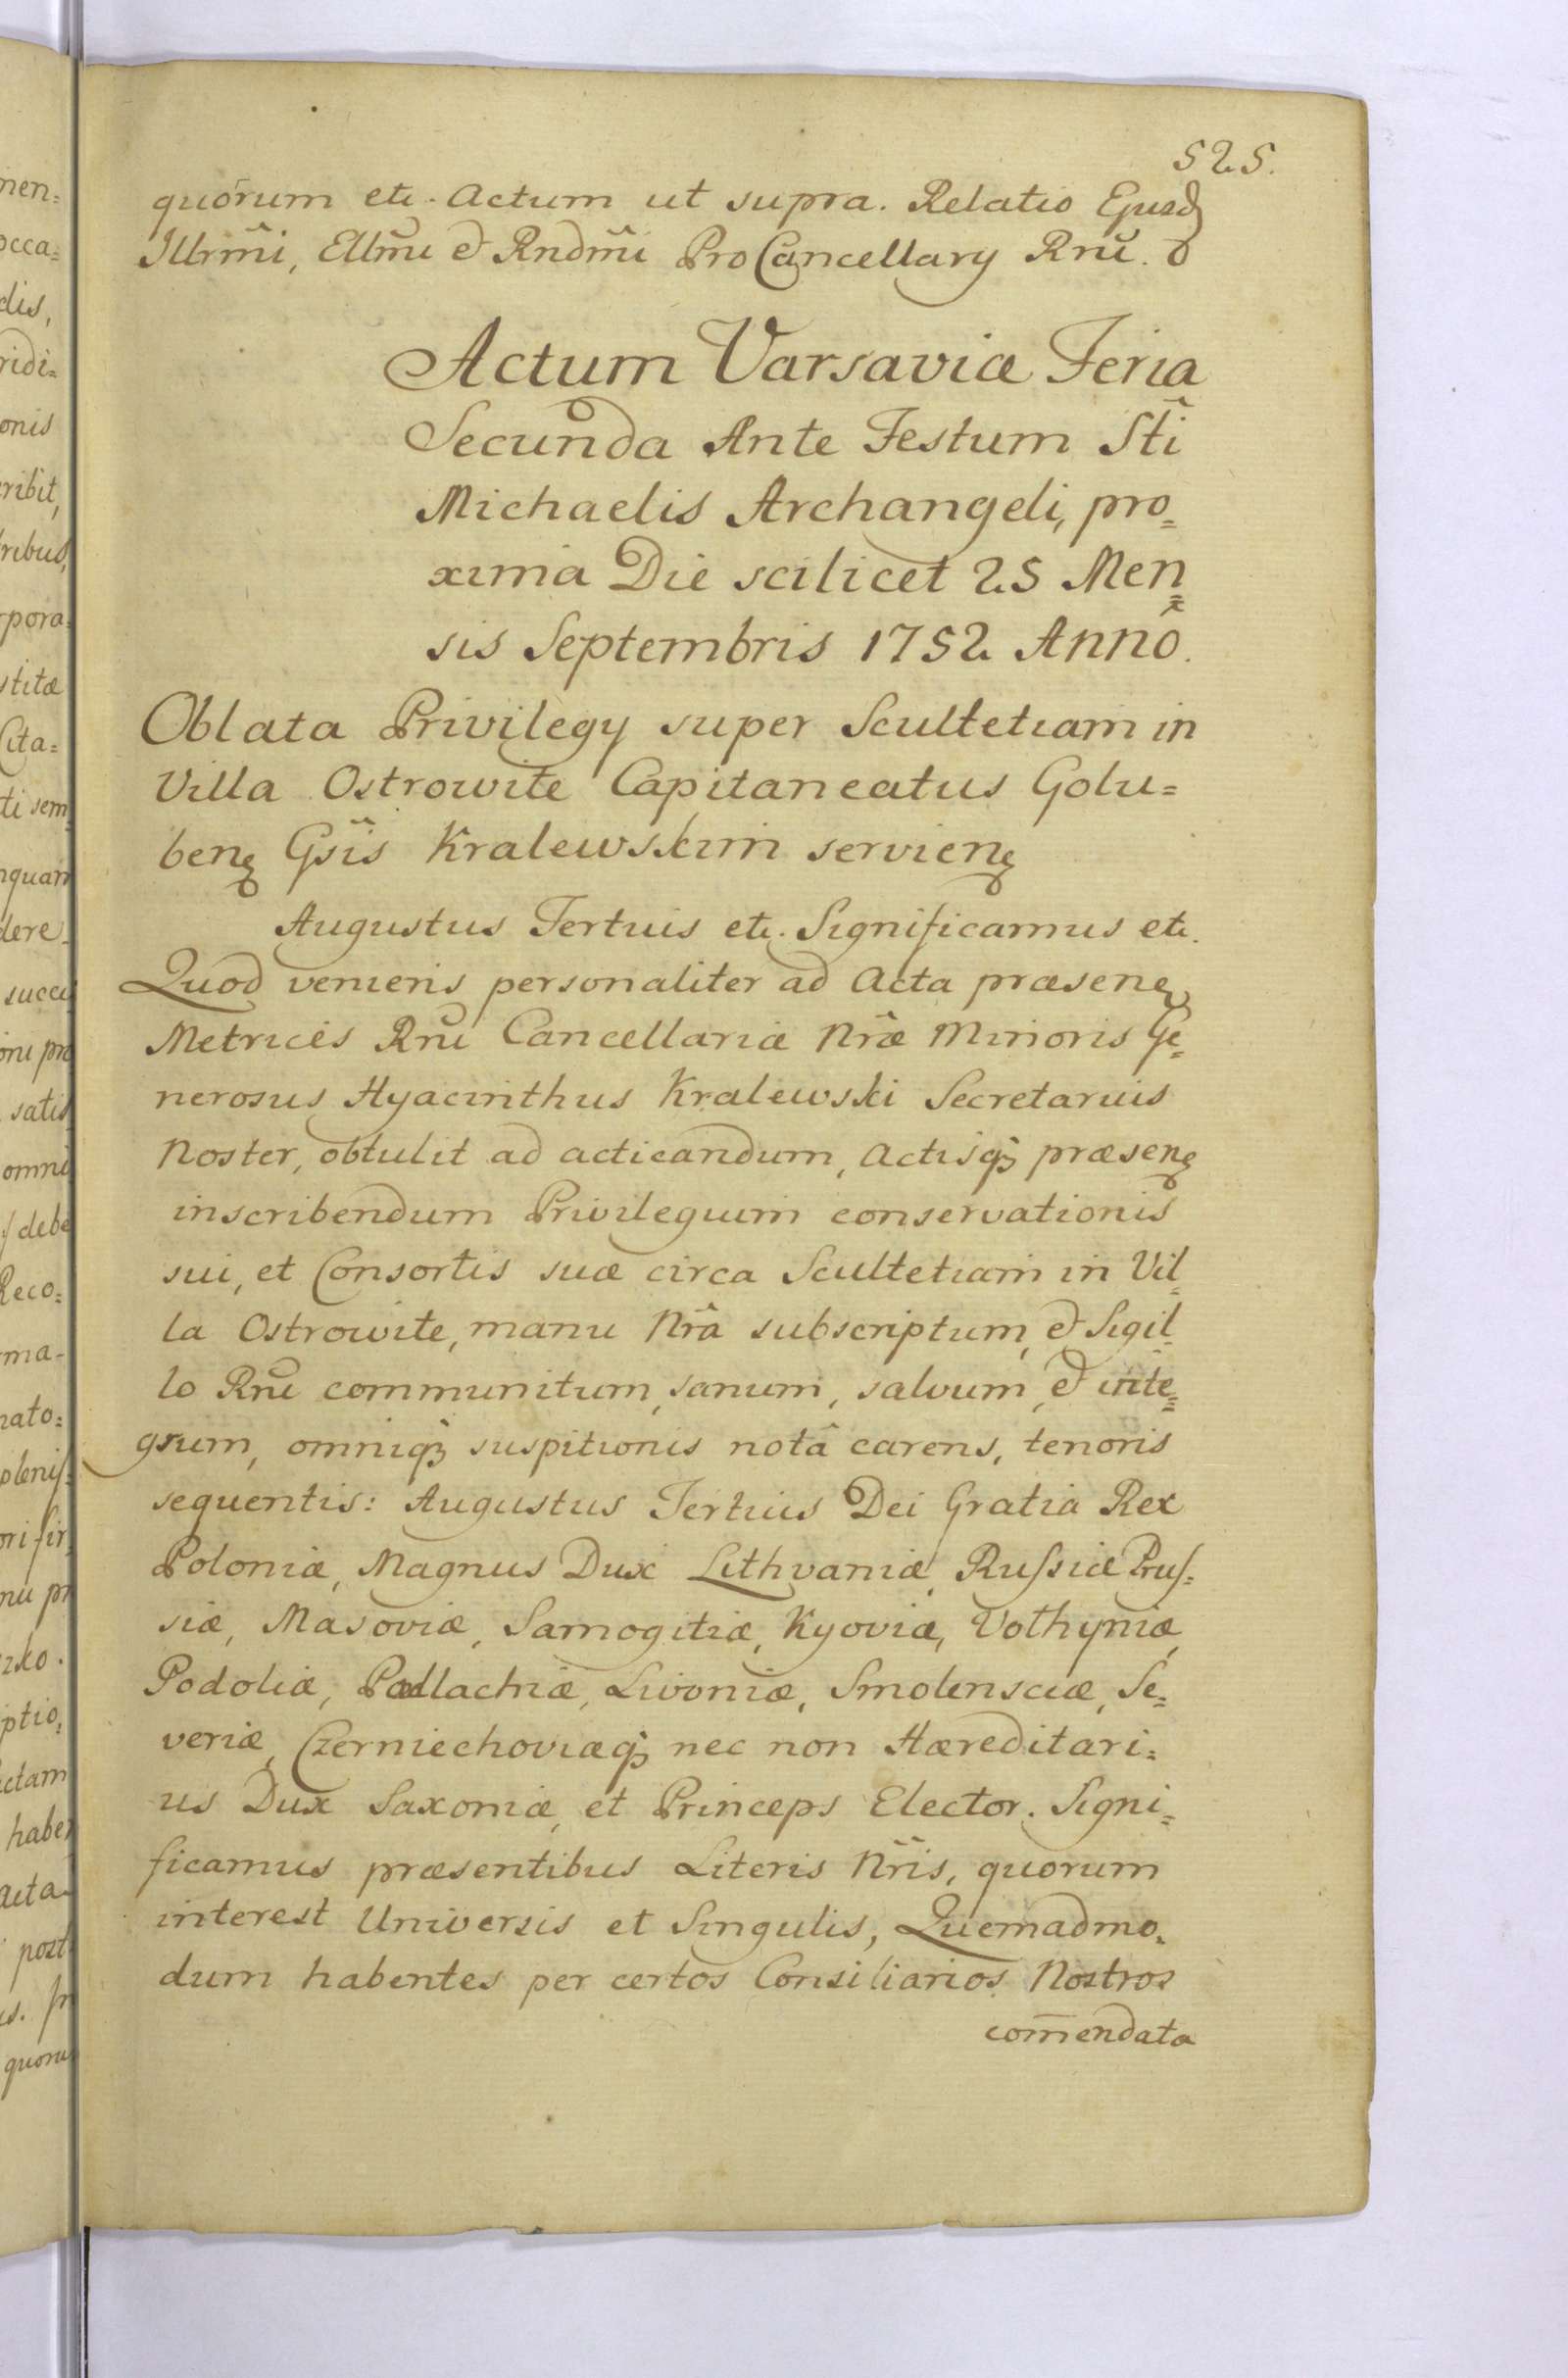 525.
quorum etc. Actum ut supra. Relatio Ejusd
Illrm̃i, Ellm̃i & Rndm̃i ProCancellary Rñi.
Actum Varsaviæ Feria
Secunda Ante Festum Sti
Michaelis Archangeli, pro=
xima Die scilicet 25 Men=
sis Septembris 1752 Anno.
Oblata Privilegy super Scultetiam in
Villa Ostrowite Capitaneatus Golu=
beñ Gsĩs Kralewskim servieñ
Augustus Tertius etc. Significamus etc.
Quod veniens personaliter ad Acta præseñ
Metrices Rñi Cancellariæ Nræ Minoris Ge=
nerosus Hyacinthus Kralewski Secretarius
Noster, obtulit ad acticandum, Actisq; præseñ
inscribendum Privilegium conservationis
sui, et Consortis suæ circa Scultetiam in Vil=
la Ostrowite, manu Nrâ subscriptum, & Sigil=
lo Rñi communitum, sanum, salvum, & inte=
grum, omniq; suspitionis notâ carens, tenoris
sequentis: Augustus Tertius Dei Gratia Rex
Poloniæ, Magnus Dux Lithvaniæ, Russiæ Prus=
siæ, Masoviæ, Samogitiæ, Kyoviæ, Volhyniæ,
Podoliæ, Podlachiæ, Livoniæ, Smolensciæ, Se=
veriæ, Czerniechoviæq; nec non Hæreditari=
us Dux Saxoniæ, et Princeps Elector. Signi=
ficamus præsentibus Literis Nr̃is, quorum
interest Universis et Singulis, Quemadmo=
dum habentes per certos Consiliarios Nostros
com̄endata
men=
occa=
dis,
ridi=
onis
ribit,
ribus,
rpora=
stitæ
Cita=
ti sem=
nquam
dere
succe
oni pro
satis
omni
debe
Reco=
ma=
nato=
plenis=
ori fir
nu pr
zko.
ptio,
ctam
haber
acta
post
quoru